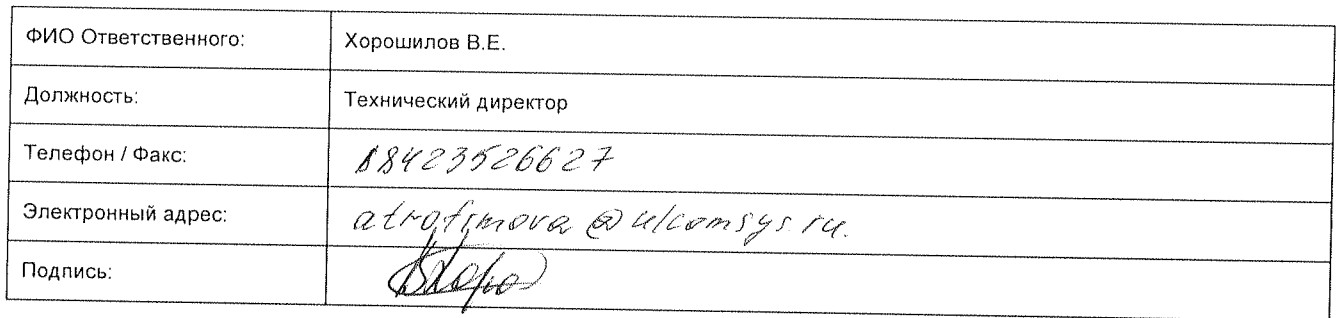 ФИО Ответственного: Хорошилов В.Е.
Должность: Технический директор
Телефон / Факс: 88423526627
Электронный адрес: atrofimova@ulcomsys.ru.
Подпись: